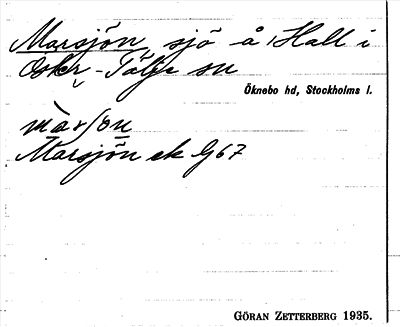 Marsjön, sjö å Hall i
Öster-Tälje sn
Öknebo hd, Stockholms l.
màrʃön
Marsjön ek G67
GÖRAN ZETTERBERG 1935.